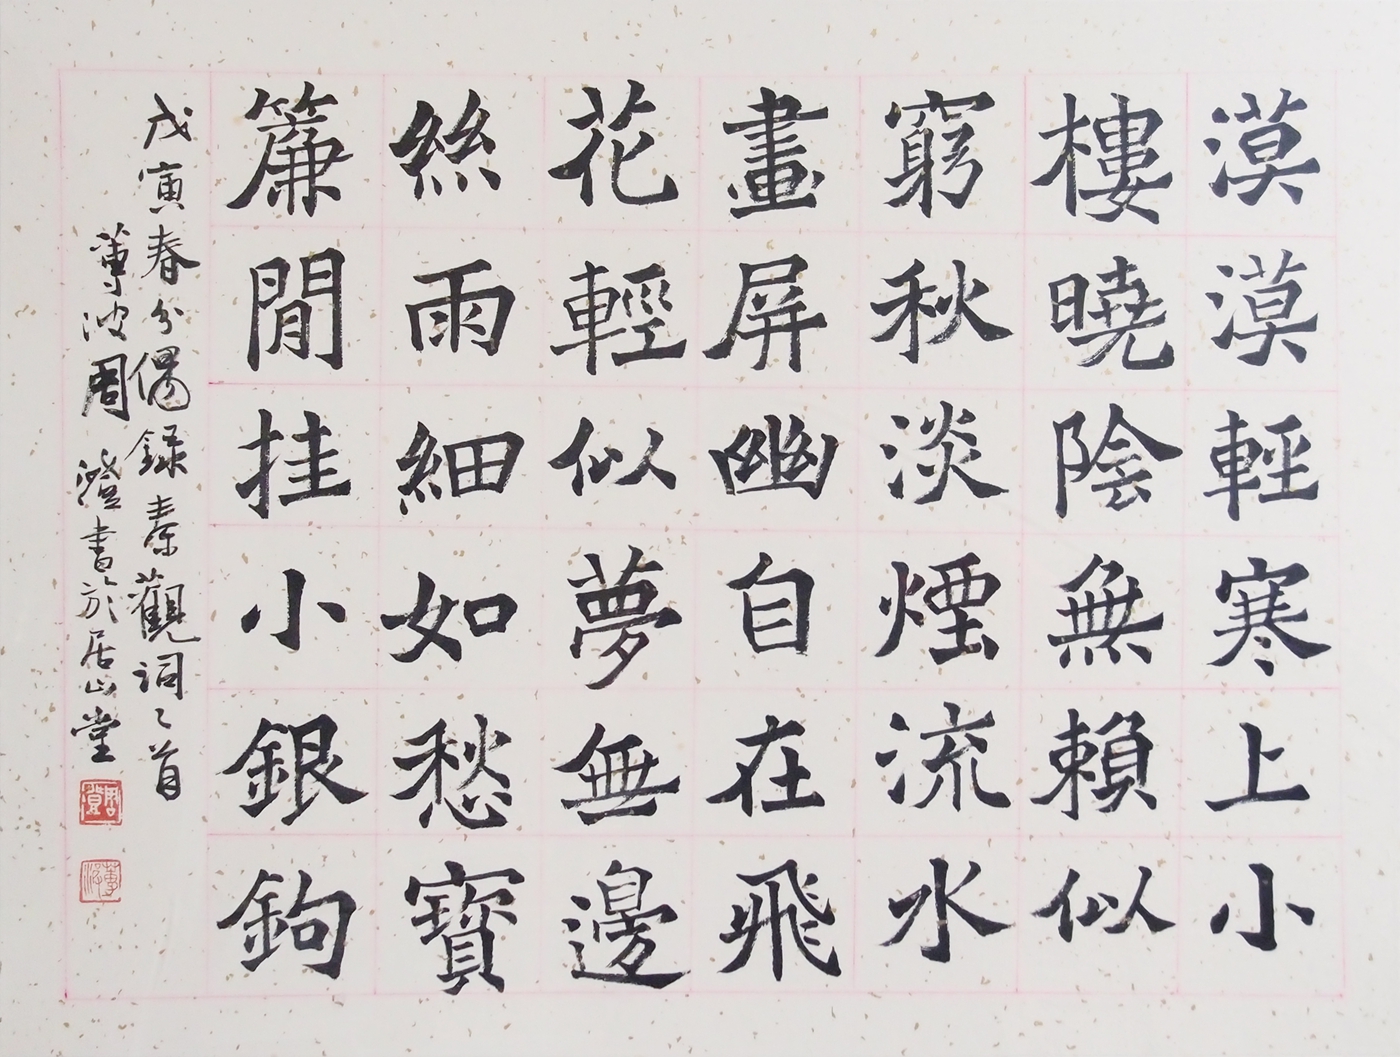 漠漠輕寒上小
樓曉陰無賴似
窮秋淡煙流水
畫屏幽自在飛
花輕似夢無邊
絲雨細如愁寶
簾閒挂小銀鉤
戊寅春分偶録秦觀詞一首
周澄書於居山堂
周澄